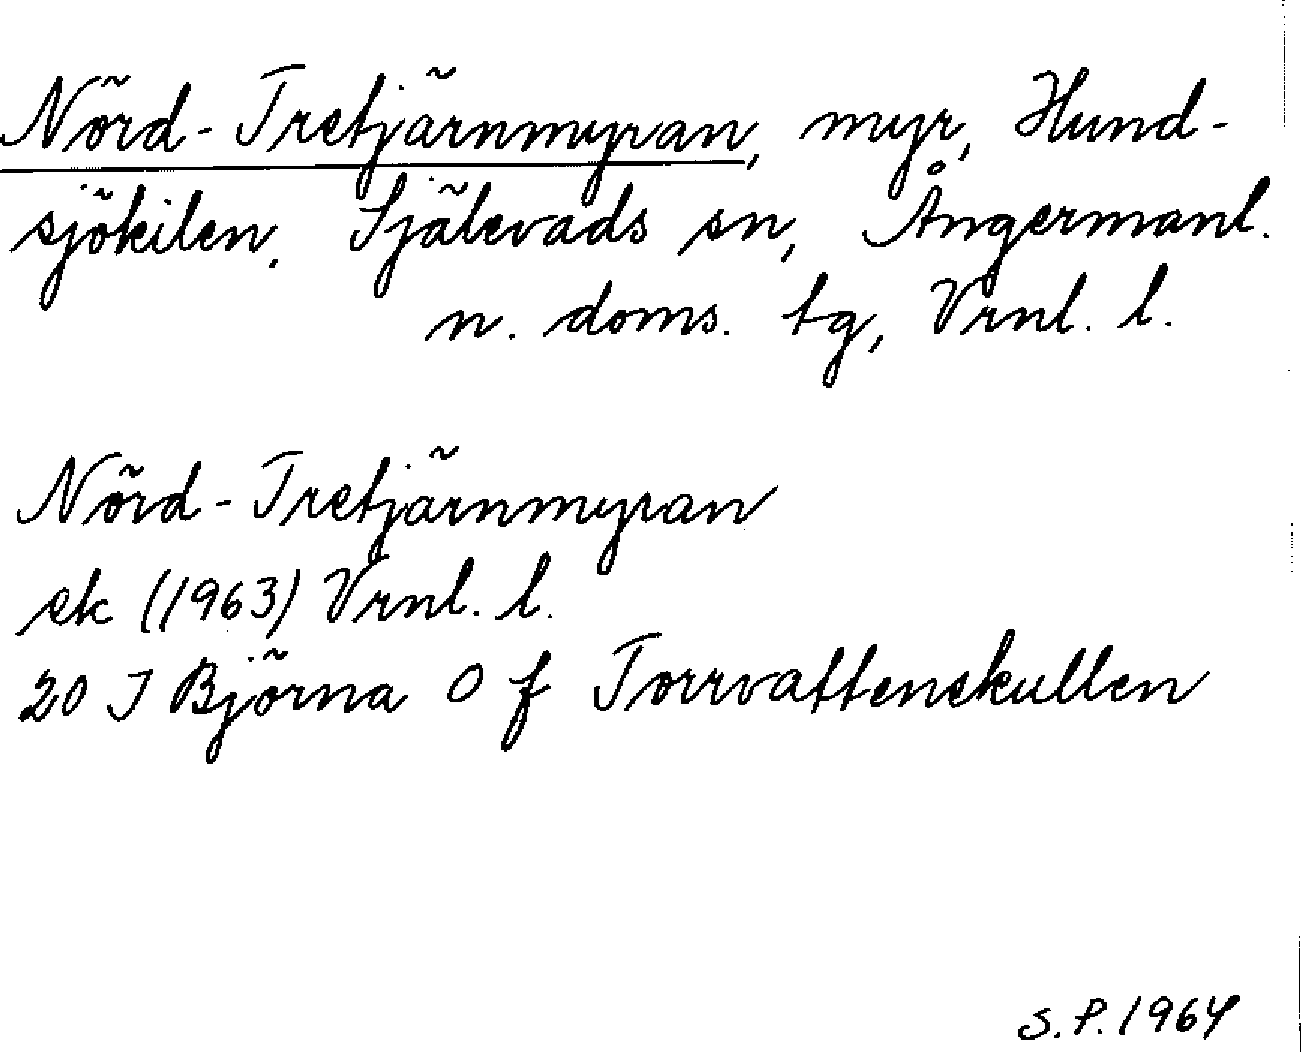 Nörd-Tretjärnmyran, myr, Hund-
sjökilen, Själevads sn, Ångermanl.
n. doms. tg, Vrnl. l.
Nörd-Tretjärnmyran
ek (1963) Vrnl. l.
20 J Björna O f Torrvattenskullen
S.P. 1964